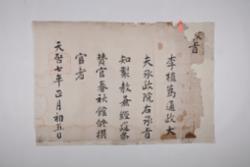 旨
李植爲通政大
夫承政院右承旨
知製敎兼經筵參
贊官春秋館修撰
官者
天啓七年正月初五日